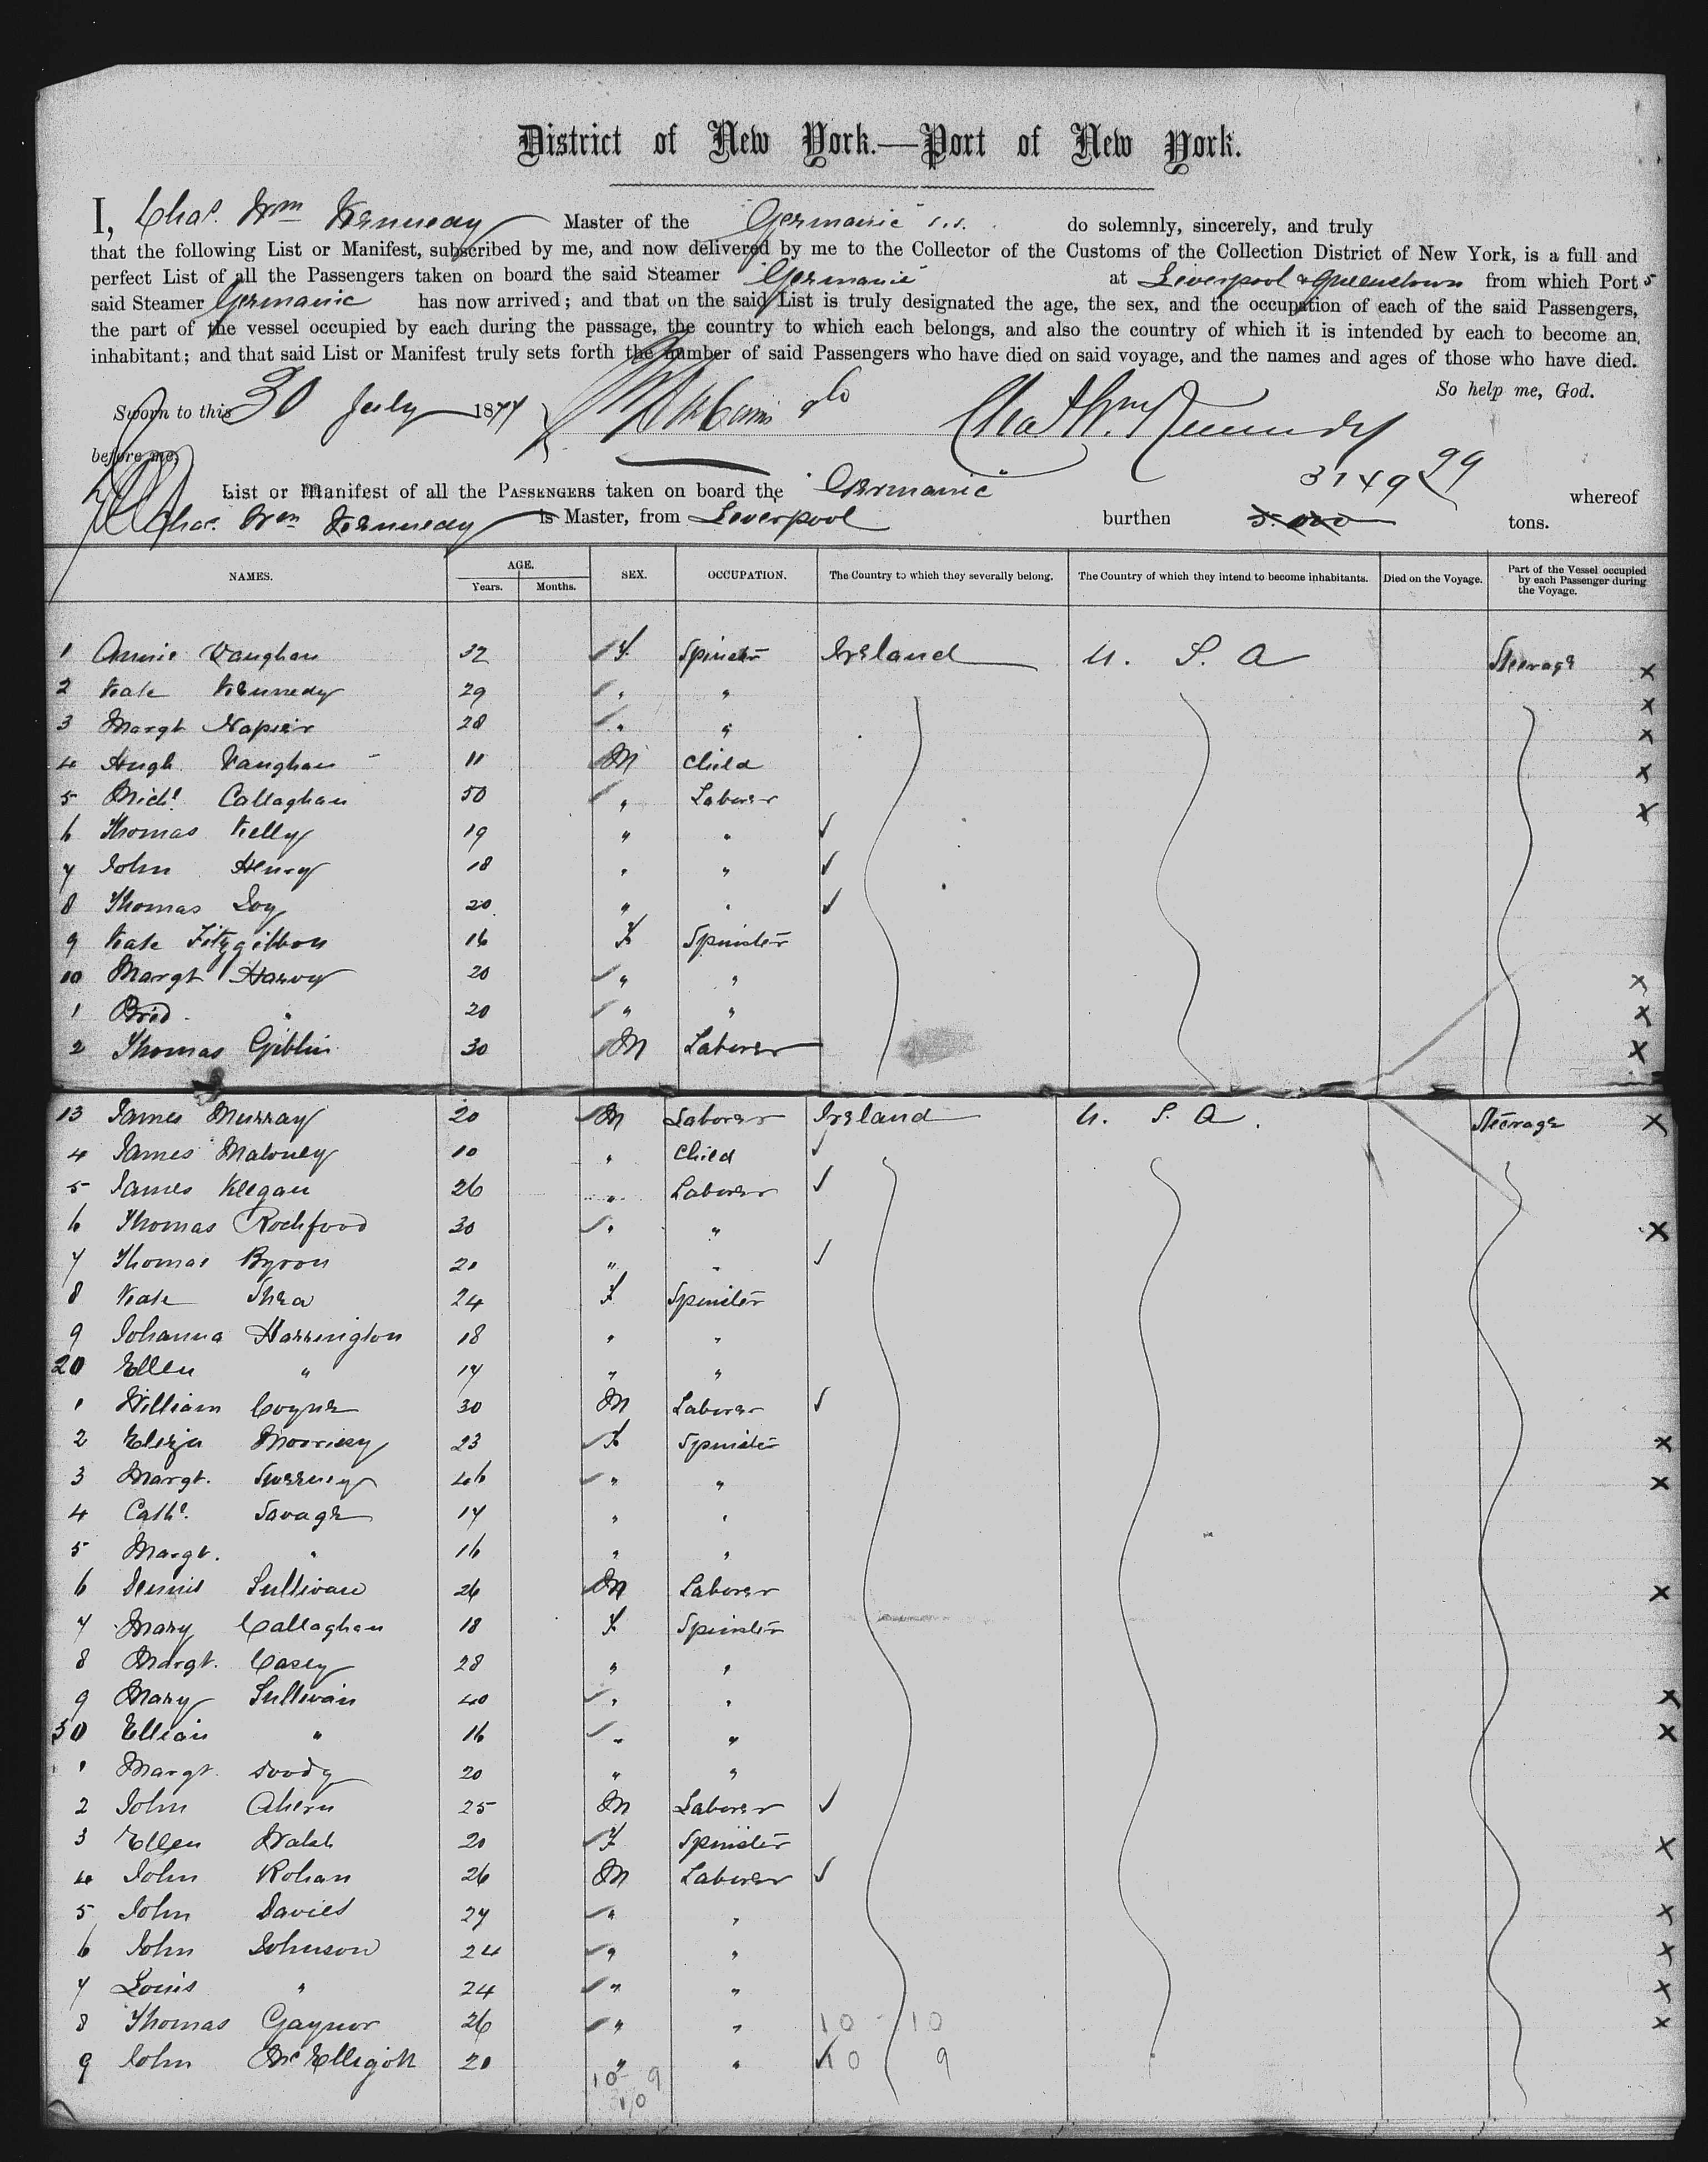 District of New York.—Port of New York.
I, Chas. Wm Kennedy Master of the "Germanic" s.s. do solemnly, sincerely, and truly
that the following List or Manifest, subscribed by me, and now delivered by me to the Collector of the Customs of the Collection District of New York, is a full and
perfect List of all the Passengers taken on board the said Steamer "Germanic" at Liverpool & Queenstown from which Port s
said Steamer Germanic has now arrived; and that on the said List is truly designated the age, the sex, and the occupation of each of the said Passengers,
the part of the vessel occupied by each during the passage, the country to which each belongs, and also the country of which it is intended by each to become an
inhabitant; and that said List or Manifest truly sets forth the number of said Passengers who have died on said voyage, and the names and ages of those who have died.
So help me, God.
Sworn to this 30 July 1877 Chas Wm Kennedy
before me,
List or Manifest of all the PASSENGERS taken on board the "Germanic" whereof
Chas. Wm Kennedy is Master, from Liverpool burthen 5.000 3149 29 tons.
NAMES. AGE. Years. Months. SEX. OCCUPATION. The Country to which they severally belong. The Country of which they intend to become inhabitants. Died on the Voyage. Part of the Vessel occupied by each Passenger during the Voyage.
1 Annie Vaughan 32 F. Spinster Ireland U. S. A Steerage x
2 Kate Kennedy 29 " " x
3 Margt Napier 28 " " x
4 Hugh Vaughan 11 M Child x
5 Michl. Callaghan 50 " Laborer x
6 Thomas Kelly 19 " "
7 John Henry 18 " "
8 Thomas Joy 20 " "
9 Kate Fitzgibbon 16 F Spinster
10 Margt Harvy 20 " " x
1 Brid. " 20 " " x
2 Thomas Giblin 30 M Laborer x
13 James Murray 20 M Laborer Ireland U. S. A. Steerage x
4 James Maloney 10 " Child
5 James Keegan 26 " Laborer
6 Thomas Rochford 30 " " x
7 Thomas Byron 20 " "
8 Kate Shea 24 F Spinster
9 Johanna Harrington 18 " "
20 Ellen " 17 " "
1 William Coyne 30 M Laborer
2 Eliza Moorisey 23 F Spinster x
3 Margt. Sweeney 46 " " x
4 Cathe. Savage 17 " "
5 Margt. " 16 " "
6 Dennis Sullivan 26 M Laborer x
7 Mary Callaghan 18 F Spinster
8 Margt. Casey 28 " "
9 Mary Sullivan 40 " " x
30 Ellian " 16 " " x
1 Margt. Doody 20 " "
2 John Ahern 25 M Laborer
3 Ellen Walsh 20 F Spinster x
4 John Rohan 26 M Laborer
5 John Davies 27 " " x
6 John Johnson 24 " " x
7 Louis " 24 " " x
8 Thomas Gaynor 26 " " 10 - 10 x
9 John McElligott 20 " " 10 9
10 - 9
10